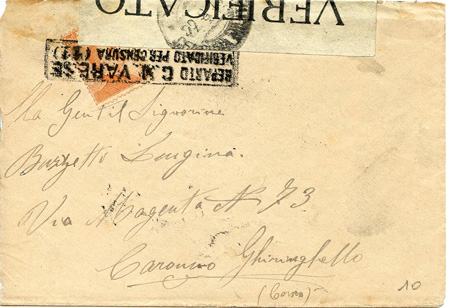 VERIFICATO
REPARTO C. M. VARESE
VERIFICATO PER CENSURA (11)
Alla Gentil Signorina
Luigina
Via Magenta N 73
Caronno Ghiringhello
(Como)
10